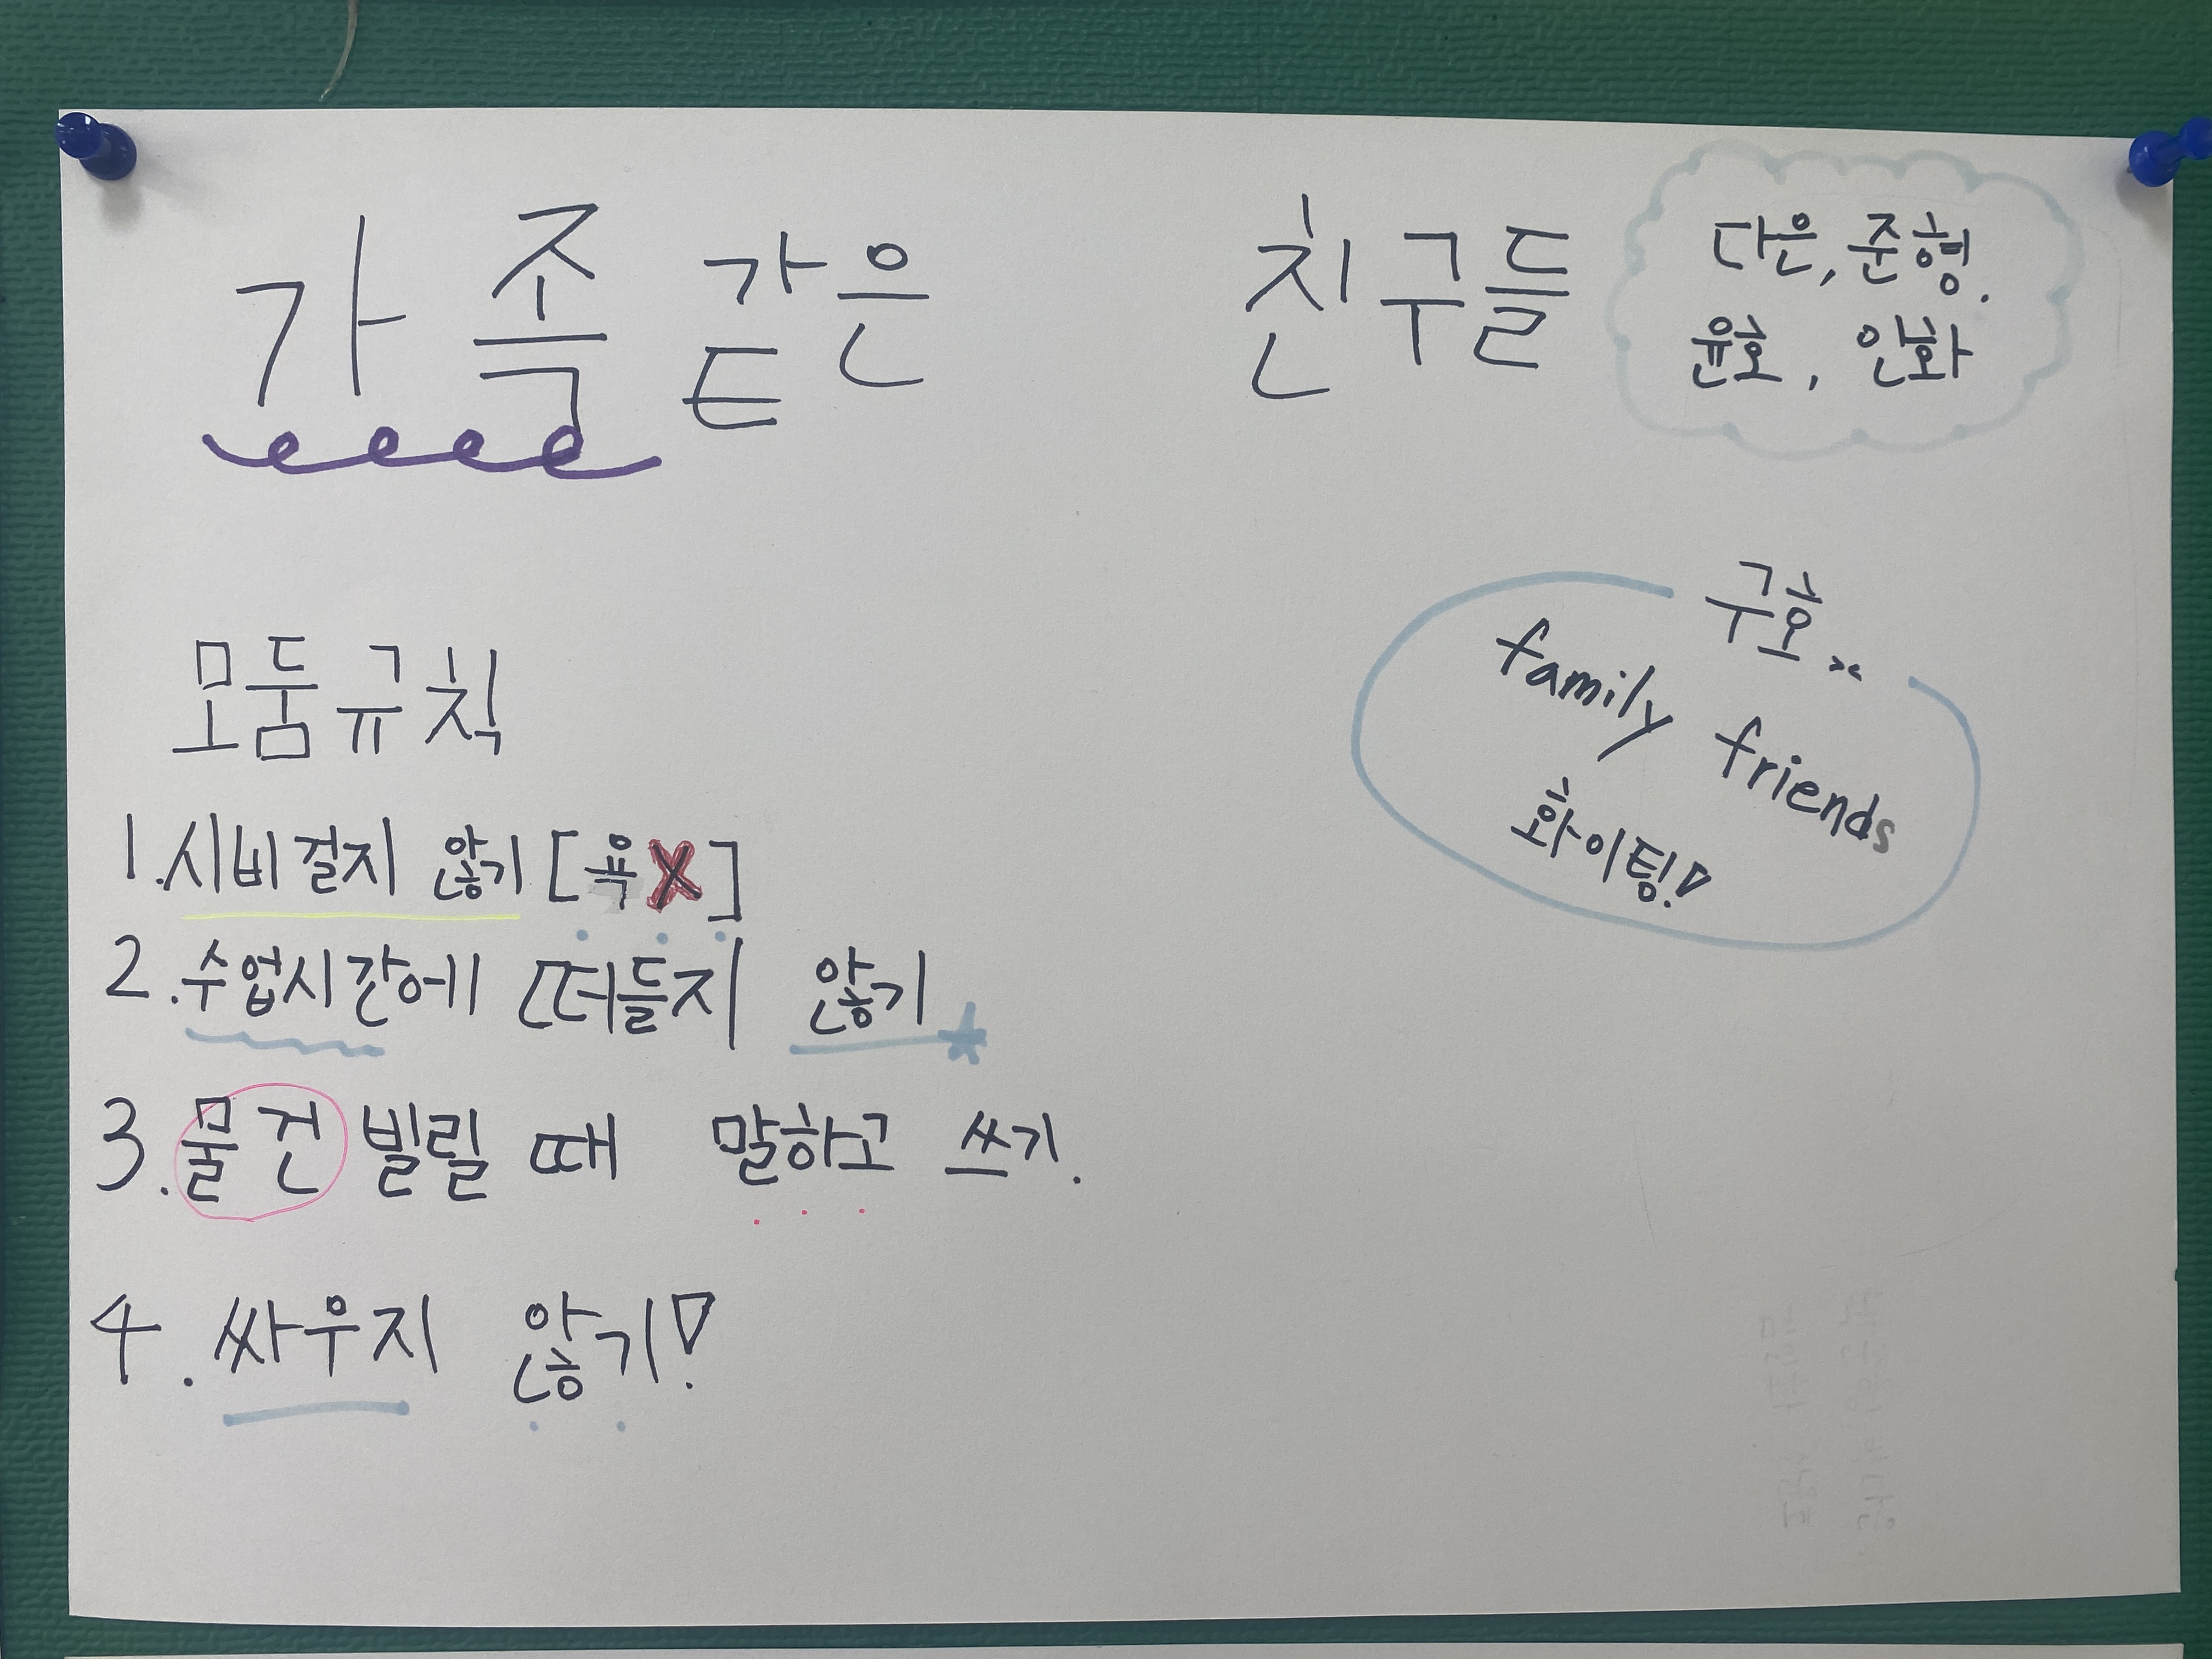 가족같은 친구들
다은, 준형.
윤호, 인화
구호 :
family friends
화이팅!
모둠규칙
1. 시비걸지 않기 [욕X]
2. 수업시간에 떠들지 않기
3. 물건 빌릴 때 말하고 쓰기.
4. 싸우지 않기!